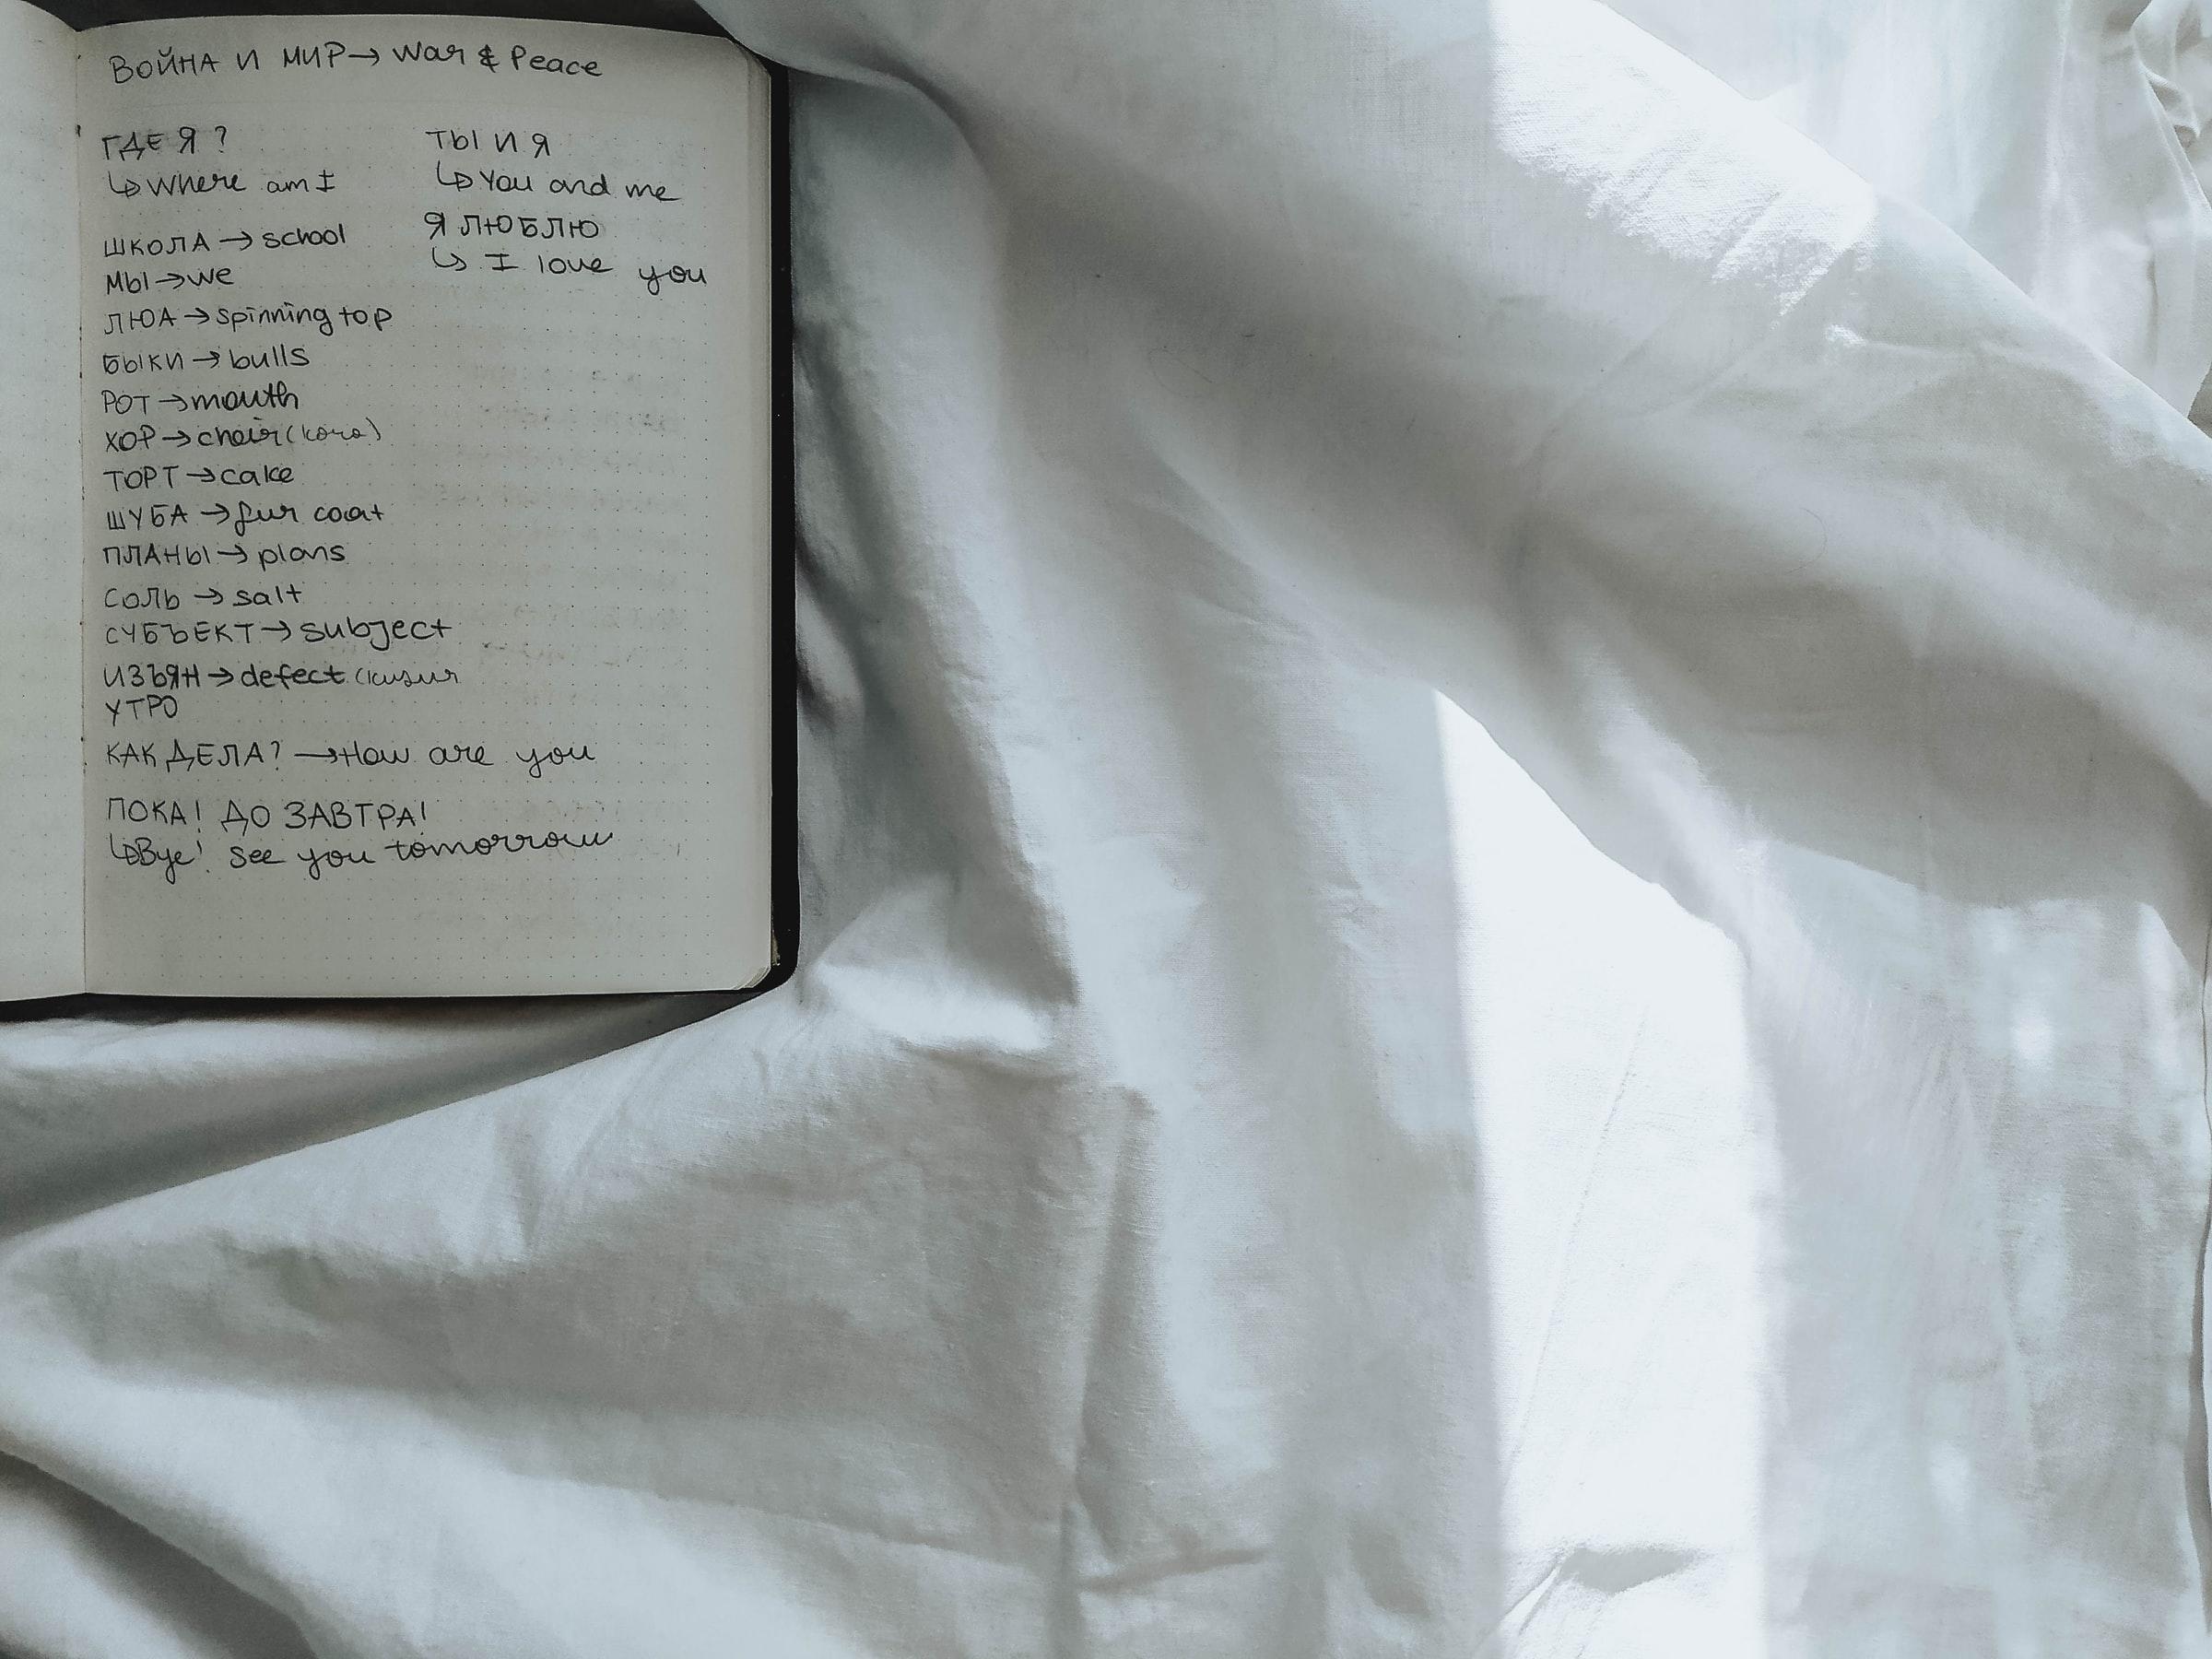 ВОЙНА И МИР → War & Peace
ГДЕ Я ?
↳ Where am I
ШКОЛА → school
МЫ → we
ЛЮА → spinning top
БЫКИ → bulls
РОТ → mouth
ХОР → choir
ТОРТ → cake
ШУБА → fur coat
ПЛАНЫ → plans
СОЛЬ → salt
СУБЪЕКТ → subject
ИЗЪЯН → defect
УТРО
КАК ДЕЛА? → How are you
ПОКА! ДО ЗАВТРА!
↳ Bye! See you tomorrow
ТЫ И Я
↳ You and me
Я ЛЮБЛЮ
↳ I love you